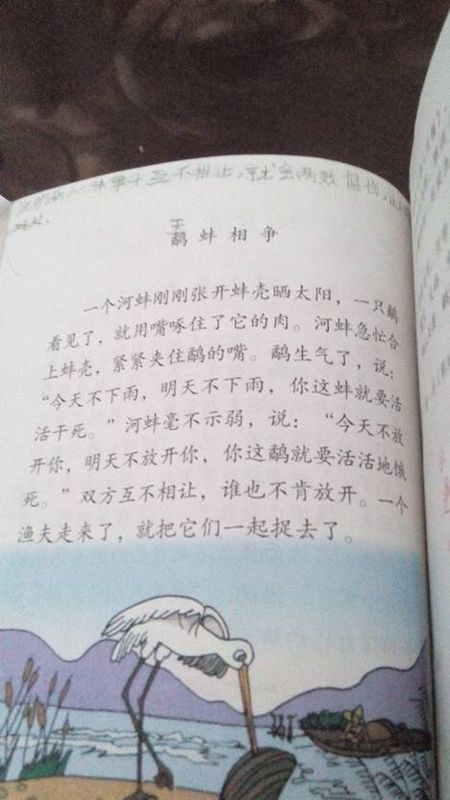 互不相让,就会两败俱伤,
好处.
鹬蚌相争
一个河蚌刚刚张开蚌壳晒太阳,一只鹬
看见了,就用嘴啄住了它的肉。河蚌急忙合
上蚌壳,紧紧夹住鹬的嘴。鹬生气了,说:
“今天不下雨,明天不下雨,你这蚌就要活
活干死。”河蚌毫不示弱,说:“今天不放
开你,明天不放开你,你这鹬就要活活地饿
死。”双方互不相让,谁也不肯放开。一个
渔夫走来了,就把它们一起捉去了。